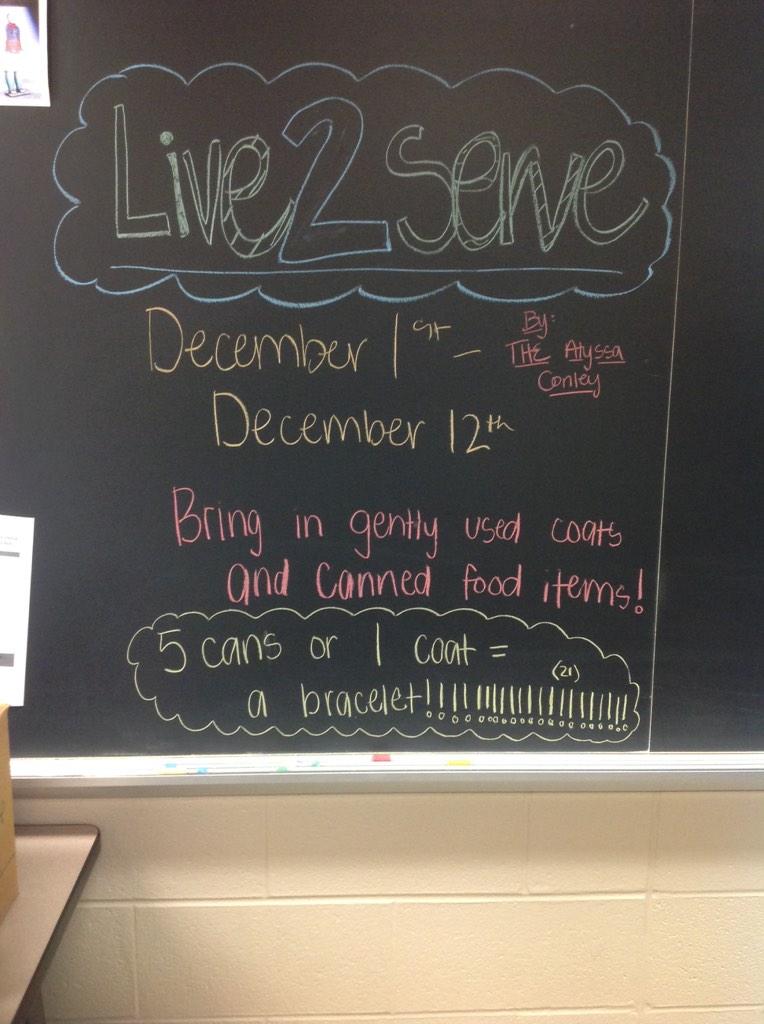 Live 2 Serve
December 1st -
By:
THE Alyssa
Conley
December 12th
Bring in gently used coats
and canned food items!
5 cans or 1 coat =
(21)
a bracelet!!!!!!!!!!!!!!!!!!!!!